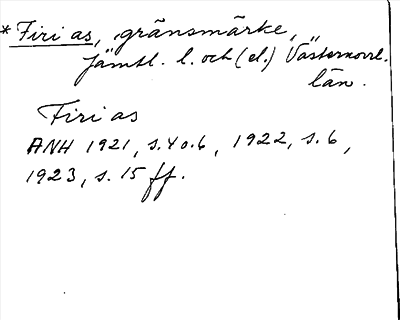 * Firi as, gränsmärke,
Jämtl. l. och (el.) Västernorrl.
län.
Firi as
ANH 1921, s. 4 o. 6, 1922, s. 6,
1923, s. 15 ff.